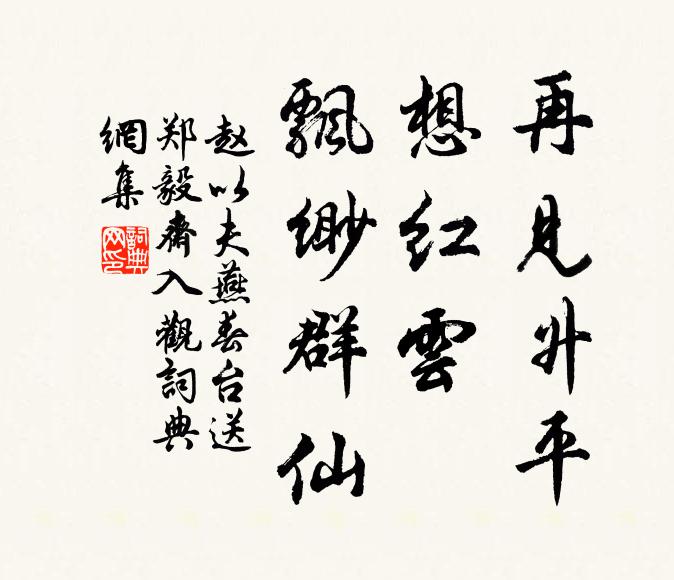 再见升平
想红雲
飄缈群仙
赵以夫燕春台送
郑毅齋入觀詞典
網集
詞典
网印